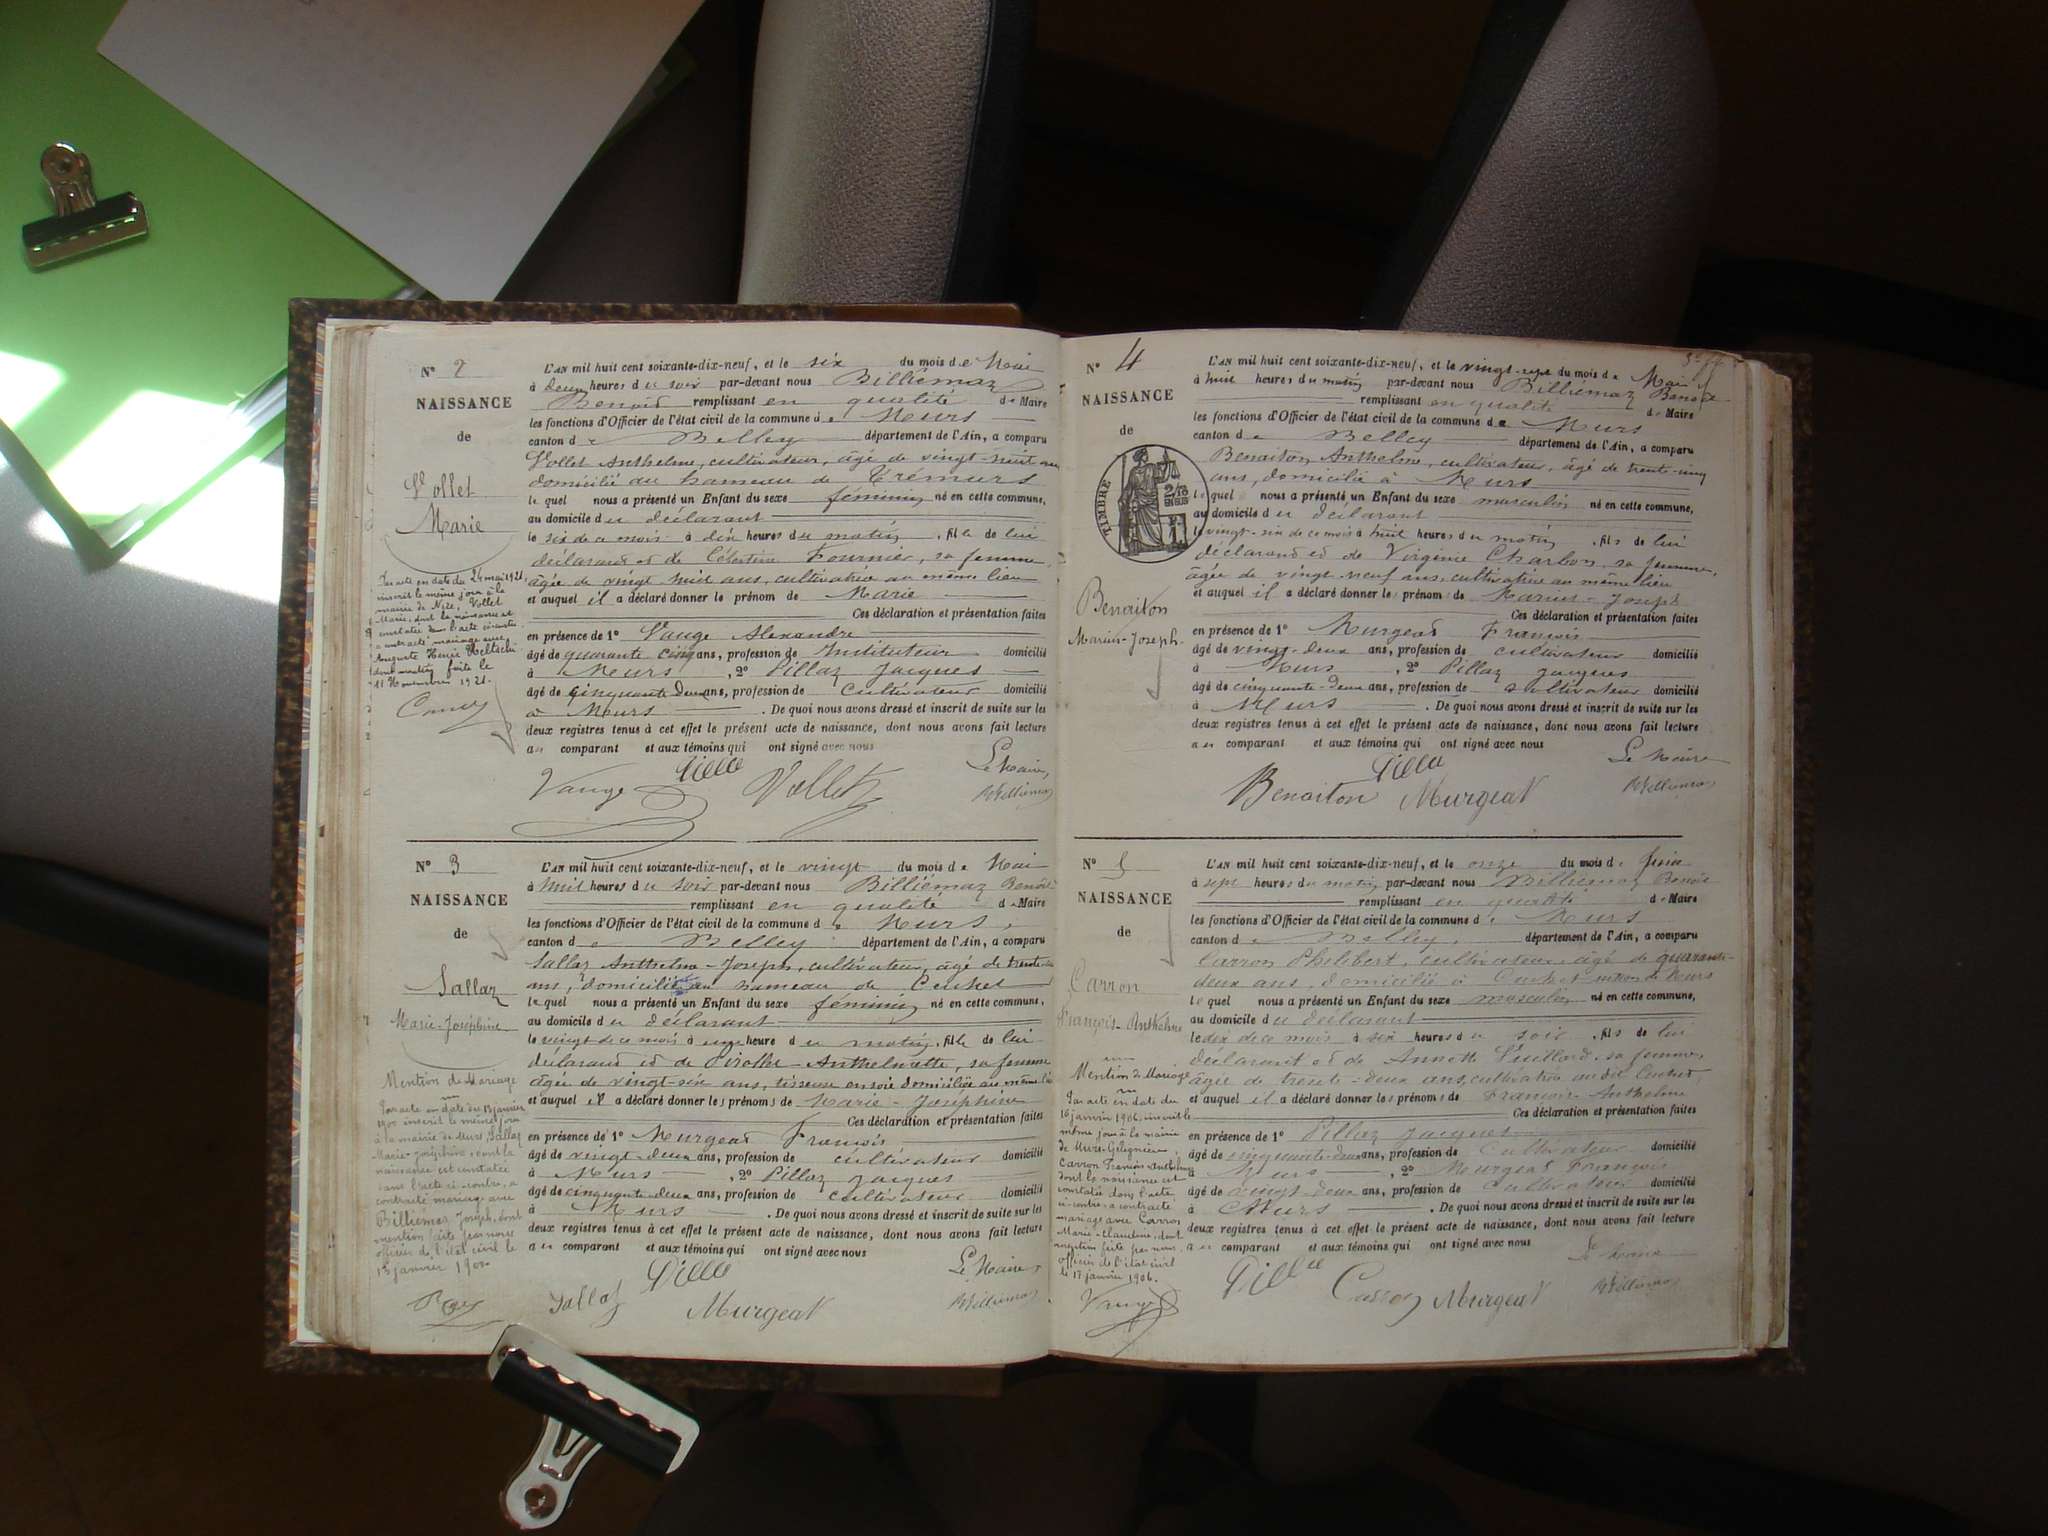 N° 2
NAISSANCE
de
Vollet
Marie
Par acte en date du 24 mai 1921,
inscrit le même jour à la
mairie de Vollet
Marie, dont la naissance est
constatée dans l'acte ci-contre
a contracté mariage avec
Auguste Henri
dont mention faite le
11 Novembre 1921.
L'AN mil huit cent soixante-dix-neuf, et le six du mois de Mai
à deux heures du soir par-devant nous Billiémaz
Benoit remplissant en qualité de Maire
les fonctions d'Officier de l'état civil de la commune de Murs
canton de Belley département de l'Ain, a comparu
Vollet Anthelme, cultivateur, âgé de vingt-neuf ans
domicilié au hameau de Trémurs
lequel nous a présenté un Enfant du sexe féminin né en cette commune,
au domicile du déclarant
le six de ce mois à dix heures du matin, fille de lui
déclarant et de Célestine Fournier, sa femme,
âgée de vingt huit ans, cultivatrice au même lieu
et auquel il a déclaré donner le prénom de Marie
Ces déclaration et présentation faites
en présence de 1° Vauge Alexandre
âgé de quarante cinq ans, profession de Instituteur domicilié
à Murs, 2° Pillaz Jacques
âgé de cinquante-deux ans, profession de Cultivateur domicilié
à Murs. De quoi nous avons dressé et inscrit de suite sur les
deux registres tenus à cet effet le présent acte de naissance, dont nous avons fait lecture
au comparant et aux témoins qui ont signé avec nous
Vauge Vollet Le Maire,
Billiémaz
N° 3
NAISSANCE
de
Sallaz
Marie-Joséphine
Mention de Mariage
Par acte en date du 13 janvier
1900 inscrit le même jour
à la mairie de Murs, Sallaz
Marie-Joséphine, dont la
naissance est constatée
dans l'acte ci-contre, a
contracté mariage avec
Billiémaz Joseph, dont
mention faite par nous
officier de l'état civil le
13 janvier 1900.
L'AN mil huit cent soixante-dix-neuf, et le vingt du mois de Mai
à huit heures du soir par-devant nous Billiémaz Benoit
remplissant en qualité de Maire
les fonctions d'Officier de l'état civil de la commune de Murs,
canton de Belley département de l'Ain, a comparu
Sallaz Anthelme-Joseph, cultivateur, âgé de
ans, domicilié au hameau de Cuchet
lequel nous a présenté un Enfant du sexe féminin né en cette commune,
au domicile du déclarant
le vingt de ce mois à une heure du matin, fille de lui
déclarant et de Anthelmette, sa femme
âgée de vingt-six ans, tisseuse en soie domiciliée au même lieu
et auquel il a déclaré donner les prénoms de Marie-Joséphine
Ces déclaration et présentation faites
en présence de 1° Murgeat François
âgé de vingt-deux ans, profession de cultivateur domicilié
à Murs, 2° Pillaz Jacques
âgé de cinquante-deux ans, profession de cultivateur domicilié
à Murs. De quoi nous avons dressé et inscrit de suite sur les
deux registres tenus à cet effet le présent acte de naissance, dont nous avons fait lecture
au comparant et aux témoins qui ont signé avec nous
Sallaz Murgeat Le Maire,
Billiémaz
N° 4
NAISSANCE
de
TIMBRE
Benaiton
Marius-Joseph.
L'AN mil huit cent soixante-dix-neuf, et le vingt-sept du mois de Mai
à huit heures du matin par-devant nous Billiémaz Benoit
remplissant en qualité de Maire
les fonctions d'Officier de l'état civil de la commune de Murs
canton de Belley département de l'Ain, a comparu
Benaiton Anthelme, cultivateur, âgé de trente-cinq
ans, domicilié à Murs
lequel nous a présenté un Enfant du sexe masculin né en cette commune,
au domicile du déclarant
le vingt-six de ce mois à huit heures du matin, fils de lui
déclarant et de Virginie Charbon, sa femme,
âgée de vingt-neuf ans, cultivatrice au même lieu
et auquel il a déclaré donner les prénoms de Marius-Joseph
Ces déclaration et présentation faites
en présence de 1° Murgeat François
âgé de vingt-deux ans, profession de cultivateur domicilié
à Murs, 2° Pillaz Jacques
âgé de cinquante-deux ans, profession de cultivateur domicilié
à Murs. De quoi nous avons dressé et inscrit de suite sur les
deux registres tenus à cet effet le présent acte de naissance, dont nous avons fait lecture
au comparant et aux témoins qui ont signé avec nous
Benaiton Murgeat Le Maire
Billiémaz
N° 5
NAISSANCE
de
Carron
François-Anthelme
Mention de Mariage
Par acte en date du
16 janvier 1906, inscrit le
même jour à la mairie
de Murs-Gélignieux,
Carron François Anthelme
dont la naissance est
constatée dans l'acte
ci-contre a contracté
mariage avec Carron
Marie-Claudine, dont
mention faite par nous,
officier de l'état civil
le 17 janvier 1906.
Vauge
L'AN mil huit cent soixante-dix-neuf, et le onze du mois de Juin
à sept heures du matin par-devant nous Billiémaz Benoit
remplissant en qualité de Maire
les fonctions d'Officier de l'état civil de la commune de Murs
canton de Belley, département de l'Ain, a comparu
Carron Philibert, cultivateur, âgé de quarante-
deux ans, domicilié à Cuchet de Murs
lequel nous a présenté un Enfant du sexe masculin né en cette commune,
au domicile du déclarant
le dix de ce mois à six heures du soir, fils de lui
déclarant et de Annette sa femme,
âgée de trente-deux ans, cultivatrice au dit Cuchet,
et auquel il a déclaré donner les prénoms de François-Anthelme
Ces déclaration et présentation faites
en présence de 1° Pillaz Jacques
âgé de cinquante-deux ans, profession de Cultivateur domicilié
à Murs, 2° Murgeat François
âgé de vingt-deux ans, profession de cultivateur domicilié
à Murs. De quoi nous avons dressé et inscrit de suite sur les
deux registres tenus à cet effet le présent acte de naissance, dont nous avons fait lecture
au comparant et aux témoins qui ont signé avec nous
Carron Murgeat Le Maire
Billiémaz